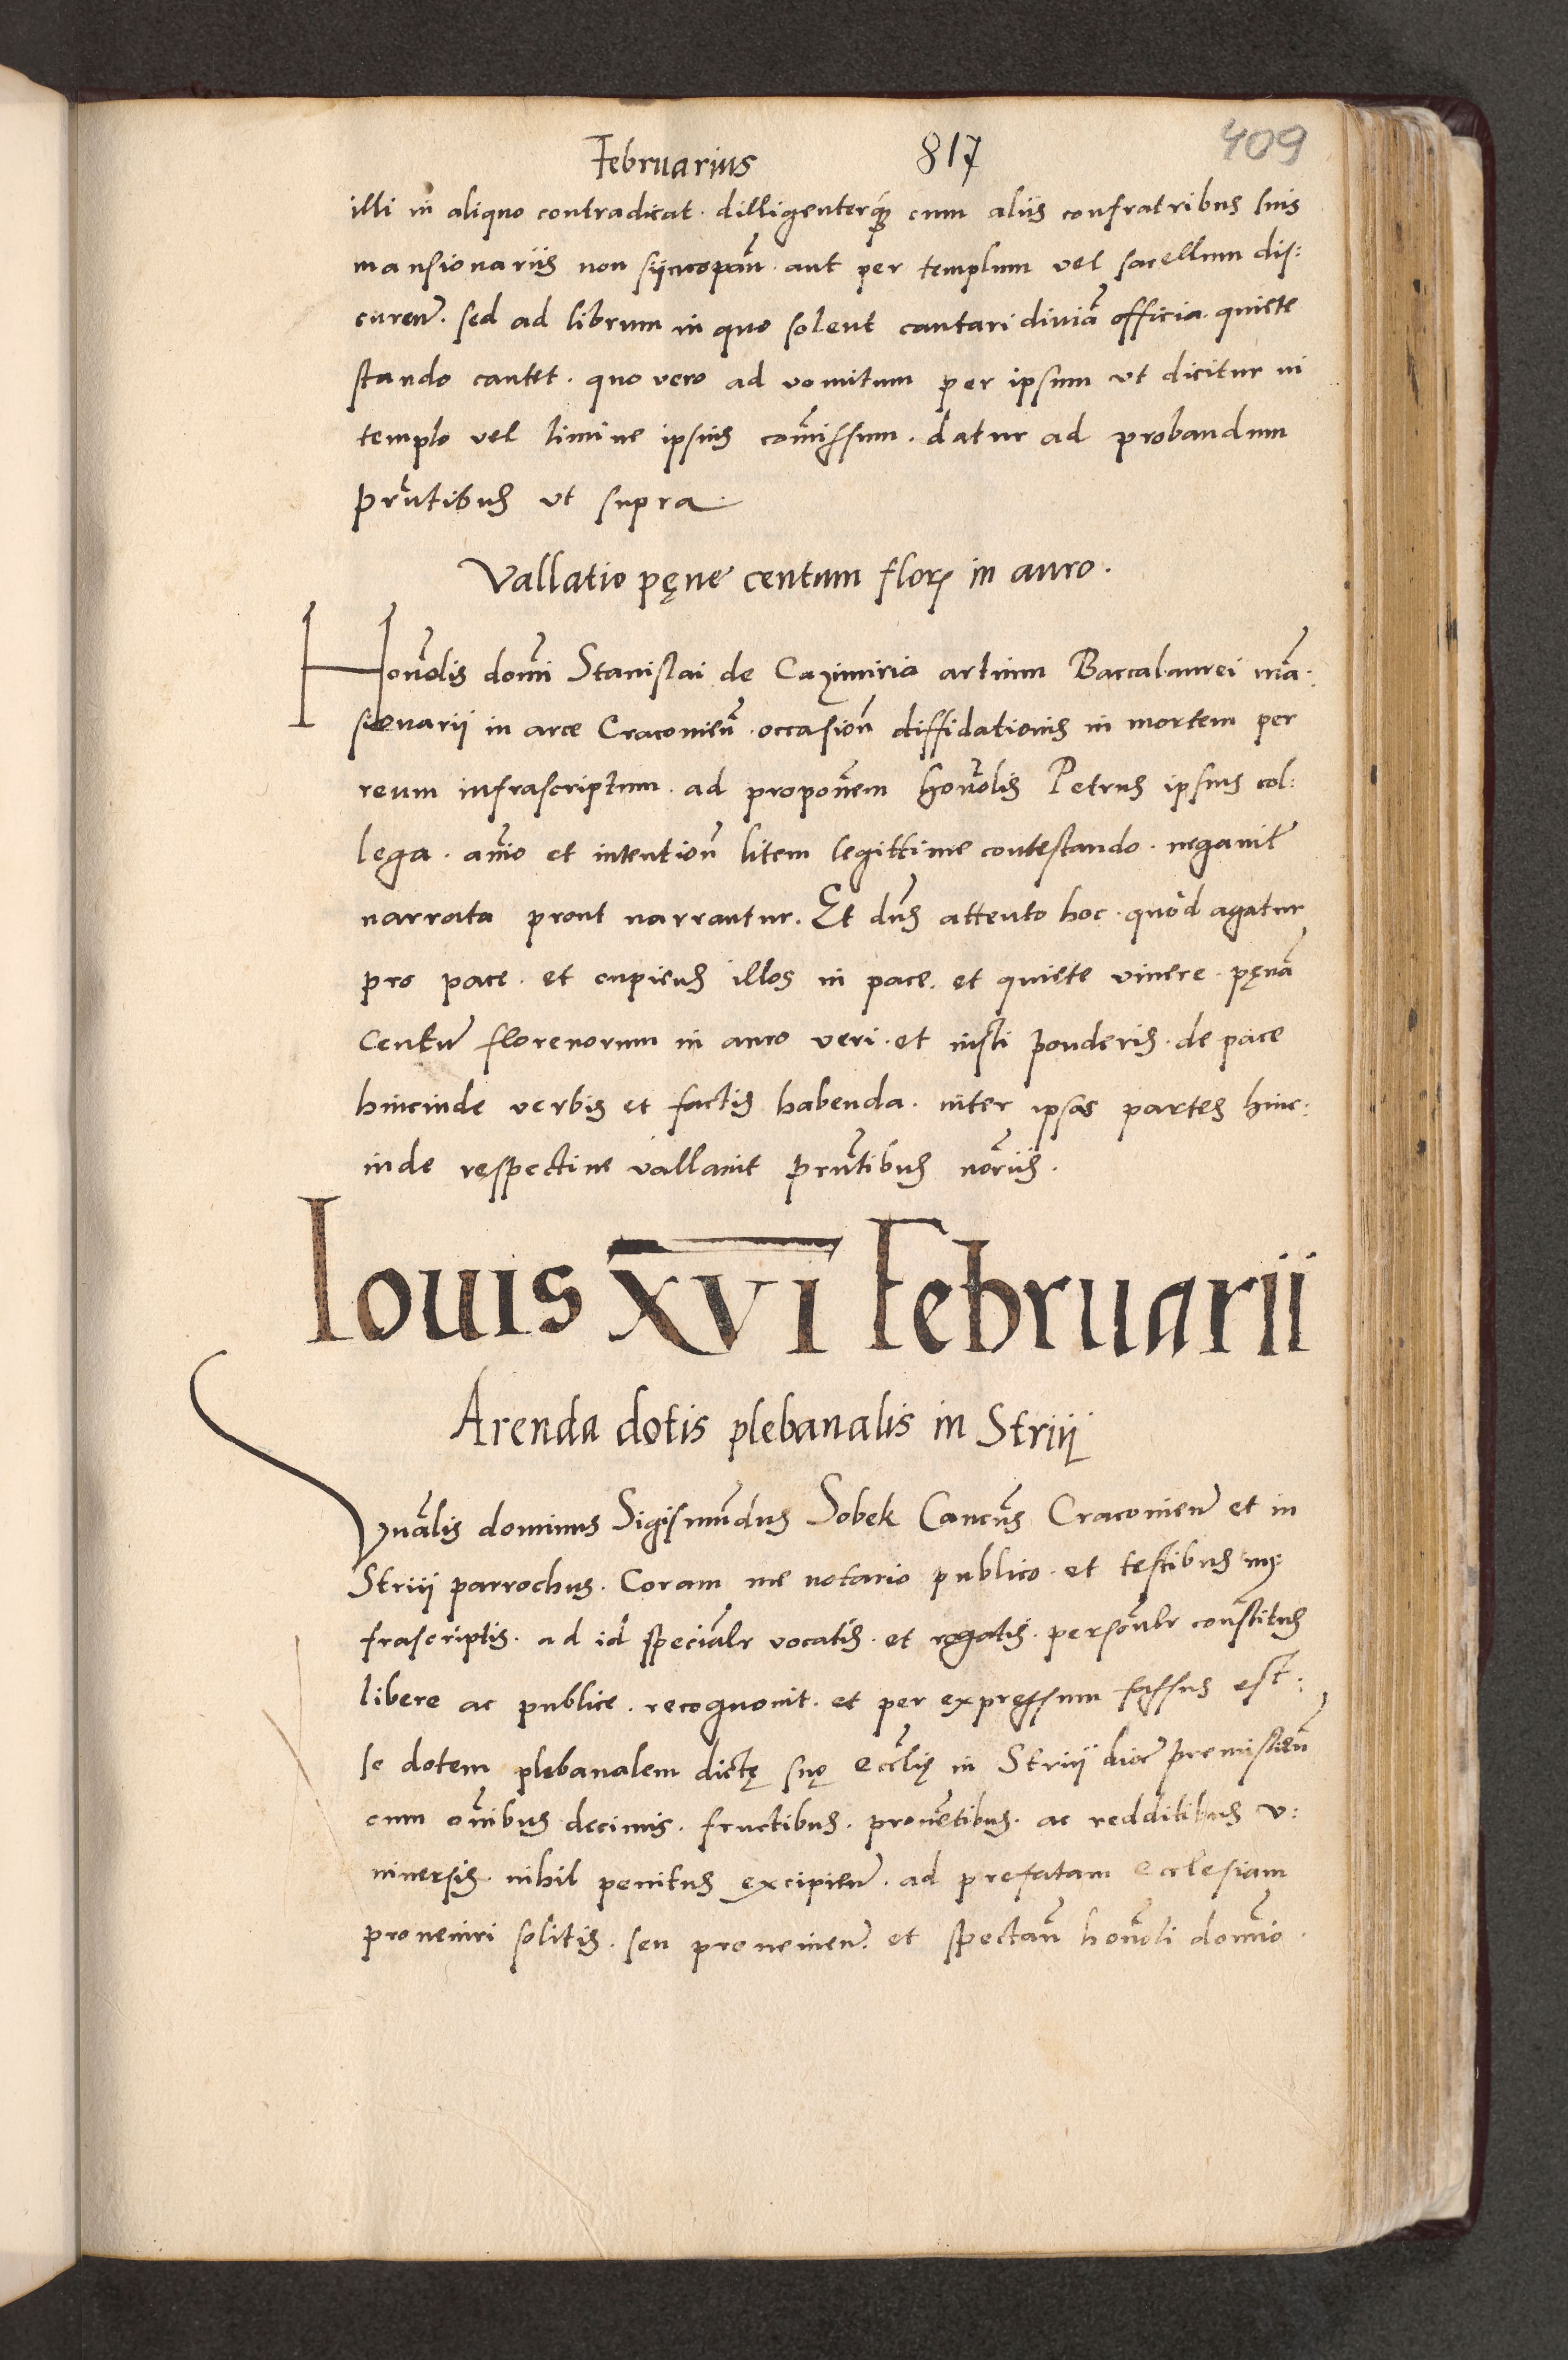 Februarius 817 409
illi in aliquo contradicat. dilligenterq; cum aliis confratribus suis
mansionariis non siincopan̄. aut per templum vel sacellum dis:
curen̄. sed ad librum in quo solent cantari diuiā officia quiete
stando cantet. quo vero ad vomitum per ipsum vt dicitur in
templo vel limine ipsius com̄issum. datur ad probandum
prn̄tibus vt supra.
Vallatio pęne centum flor̄ in auro.
Honōlis domī Stanislai de Cazimiria artium Baccalaurei mā:
sionarii in arce Cracouien̄. occasion̄ diffidationis in mortem per
reum infrascriptum. ad proponem̄ honōlis Petrus ipsius col:
lega. aīo et intention̄ litem legittime contestando. negauit
narrata prout narrantur. Et dn̄s attento hoc. quod agatur
pro pace. et cupiens illos in pace. et quiete viuere. pęnā
Centū florenorum in auro veri. et iusti ponderis. de pace
hincinde verbis et factis habenda. inter ipsas partes hinc:
inde respectiue vallauit prn̄tibus nōriis.
Iouis XVI Februarii
Arenda dotis plebanalis in Striij
Vnālis dominus Sigismūdus Sobek Cancus̄ Cracouien̄ et in
Striij parrochus. Coram me notario publico. et testibus in:
frascriptis. ad id speciālr vocatis. et rogatis. persōnalr constitus̄
libere ac publice. recognouit. et per expressum fassus est:
se dotem plebanalem dictę suę eccl̄ię in Striij dioc̄ premislien̄
cum om̄ibus decimis. fructibus. prouētibus. ac redditibus v:
niuersis. nihil penitus excipien̄. ad prefatam ecclesiam
proueniri solitis. seu prouenien̄. et spectan̄ honōli domīo.